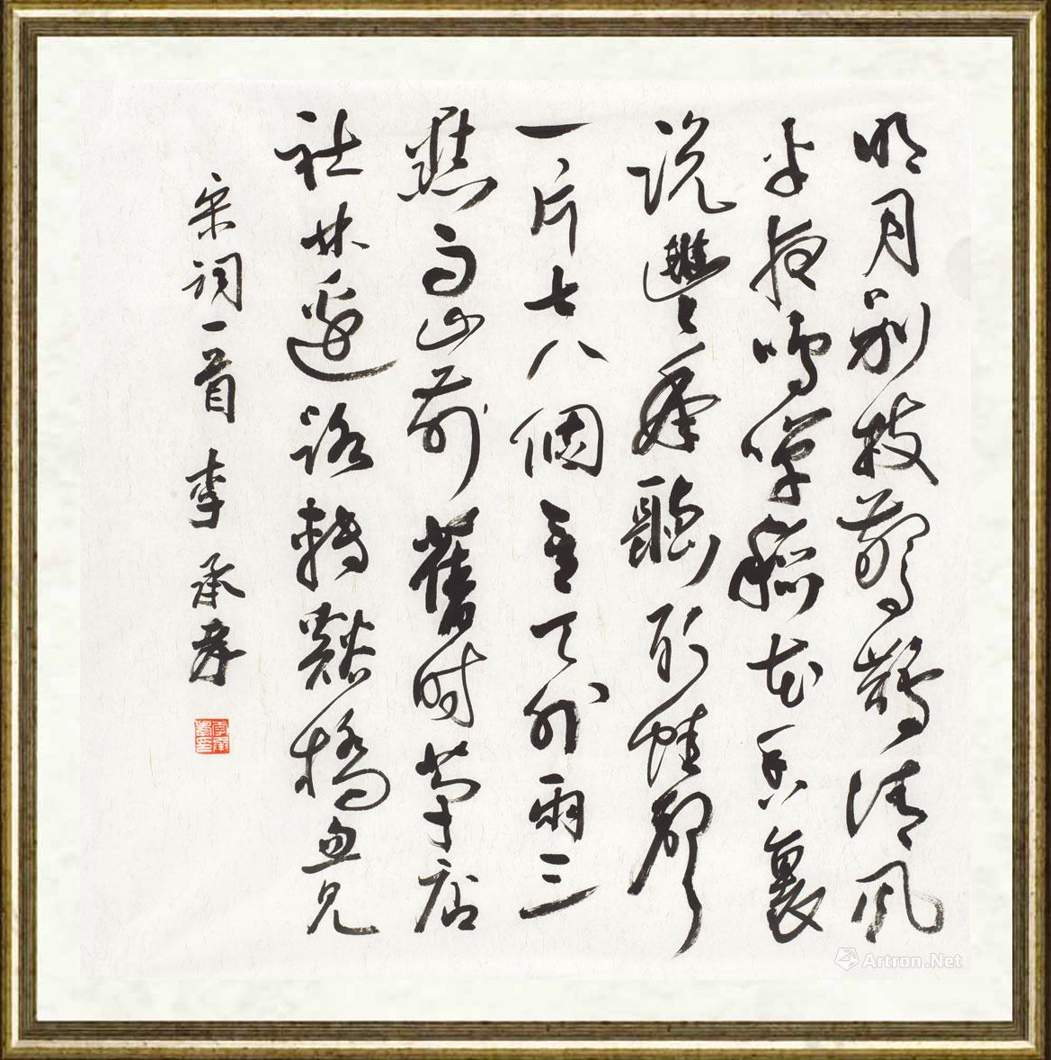 明月別枝驚鵲清風
半夜鳴蟬稻花香裏
說豐年聽取蛙聲
一片七八個星天外兩三
點雨山前舊時茅店
社林邊路轉谿橋忽見
宋詞一首 李承孝
Artron.Net